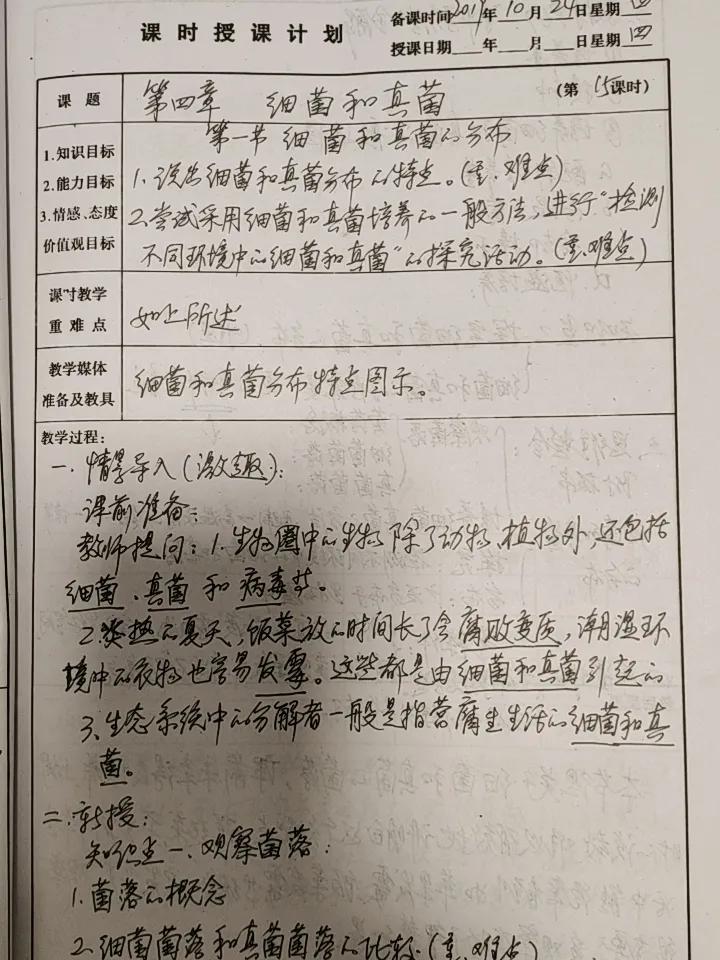 课时授课计划
备课时间2019年10月24日星期四
授课日期 年 月 日星期四
课题
第四章 细菌和真菌
(第15课时)
第一节 细菌和真菌的分布
1.知识目标
2.能力目标
3.情感、态度
价值观目标
1.说出细菌和真菌分布的特点。(重、难点)
2.尝试采用细菌和真菌培养的一般方法,进行“检测
不同环境中的细菌和真菌”的探究活动。(重、难点)
课时教学
重难点
如上所述
教学媒体
准备及教具
细菌和真菌分布特点图示。
教学过程:
一.情景导入(激趣):
课前准备:
教师提问:1.生物圈中的生物除了动物、植物外,还包括
细菌、真菌和病毒等。
2.炎热的夏天,饭菜放的时间长了会腐败变质,潮湿环
境中的衣物也容易发霉。这些都是由细菌和真菌引起的
3.生态系统中的分解者一般是指营腐生生活的细菌和真
菌。
二.新授:
知识点一、观察菌落:
1.菌落的概念
2.细菌菌落和真菌菌落的比较(重、难点)